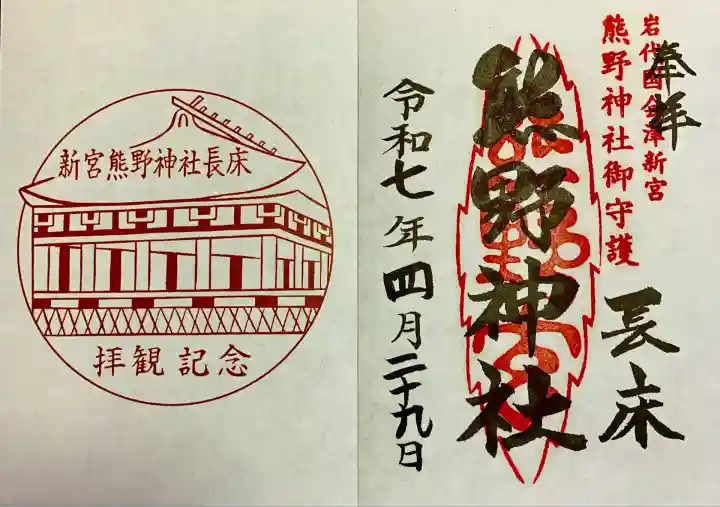 奉拝
岩代國会津新宮
熊野神社御守護
長床
熊野神社
令和七年四月二十九日
新宮熊野神社長床
拝観記念